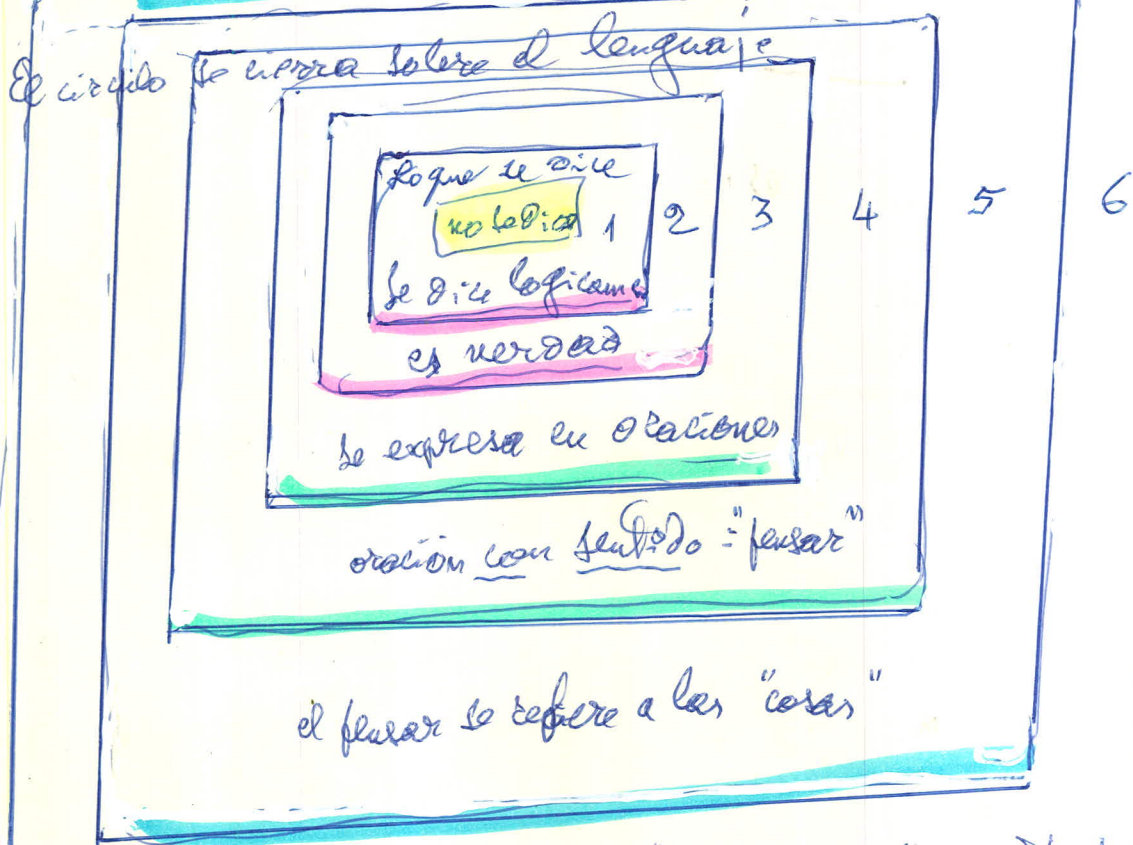 El circulo se cierra sobre el lenguaje
Lo que se dice
no se dice 1 2 3 4 5 6
se dice logicam
es verdad
se expresa en oraciones
oración con sentido = "pensar"
el pensar se refiere a las "cosas"